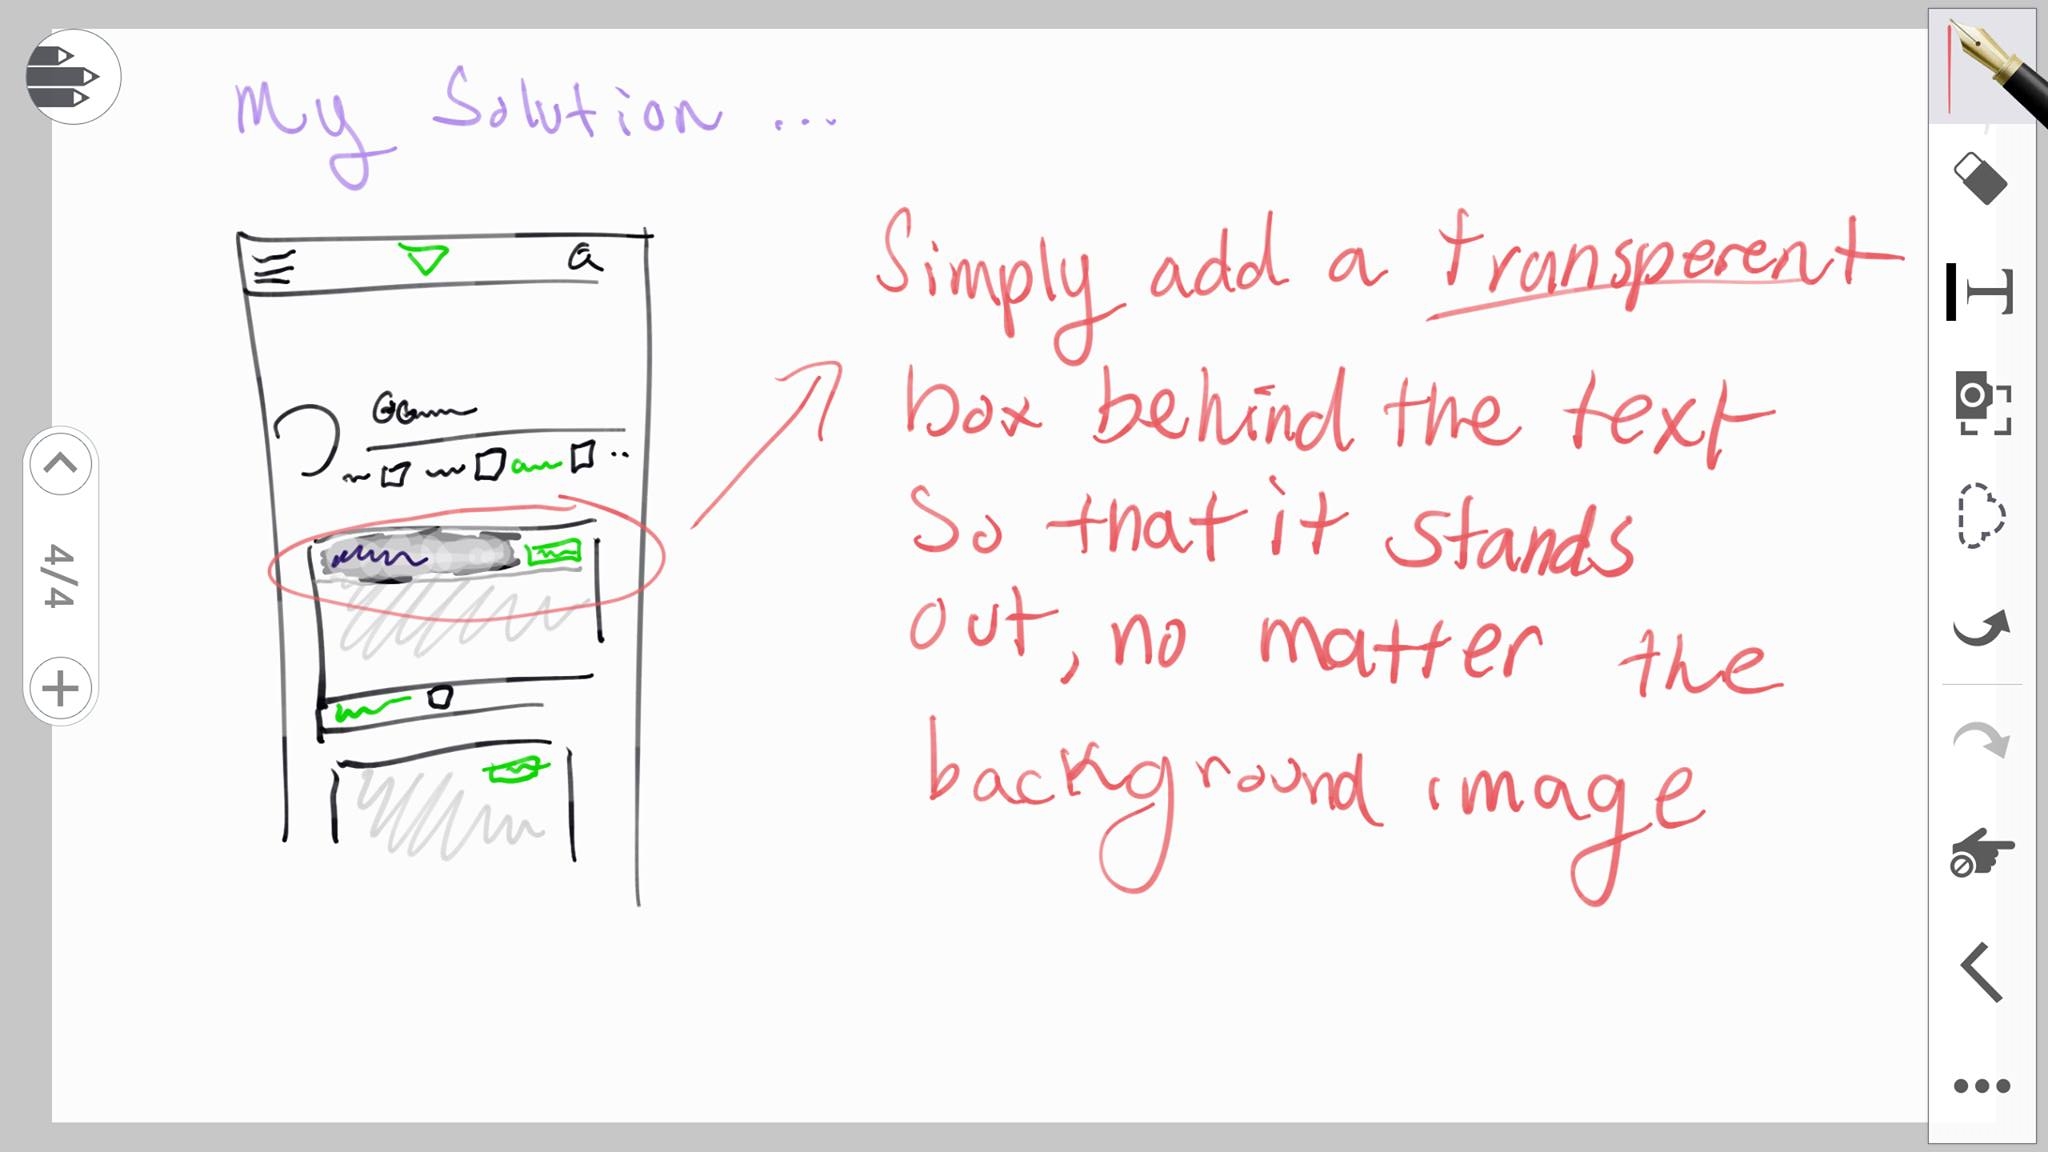 My Solution ...
Simply add a transperent
box behind the text
So that it stands
out, no matter the
background image
4/4
T